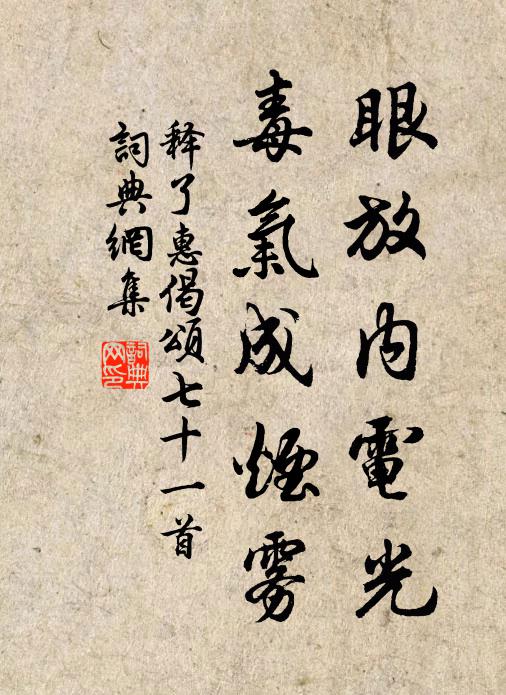 眼放内電光
毒氣成煙雾
释了惠偈頌七十一首
詞典網集
詞典网印